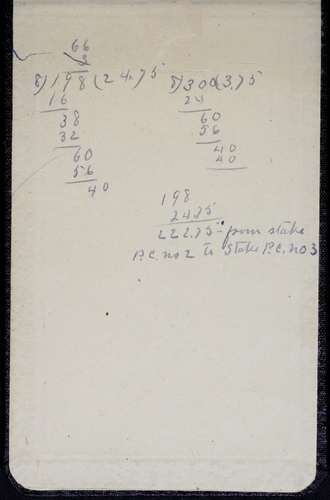 66
3
8)198(24.75
16
38
32
60
56
40
8)300(3.75
24
60
56
40
40
198
24.75
222.75 - from stake
P.C. no 2 to Stake P.C. no 3